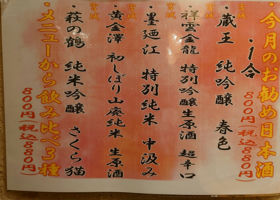 今月のお勧め日本酒
・一合 800円(税込880円)
宮城
・蔵王 純米吟醸 春色
宮城
・祥雲金龍 特別吟醸生原酒 超辛口
宮城
・墨廼江 特別純米 中汲み
宮城
・黄金澤 初しぼり山廃純米 生原酒
宮城
・萩の鶴 純米吟醸 さくら猫
・メニューから飲み比べ3種
800円(税込880円)